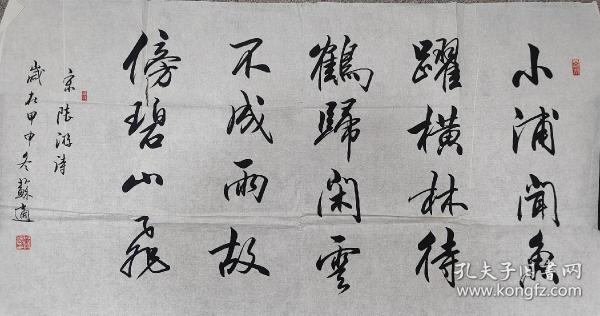 小浦闻鱼
躍横林待
鶴歸闲雲
不成雨故
傍碧山飛
宋陆游诗
歲在甲申冬蘇適
孔夫子旧书网
www.kongfz.com